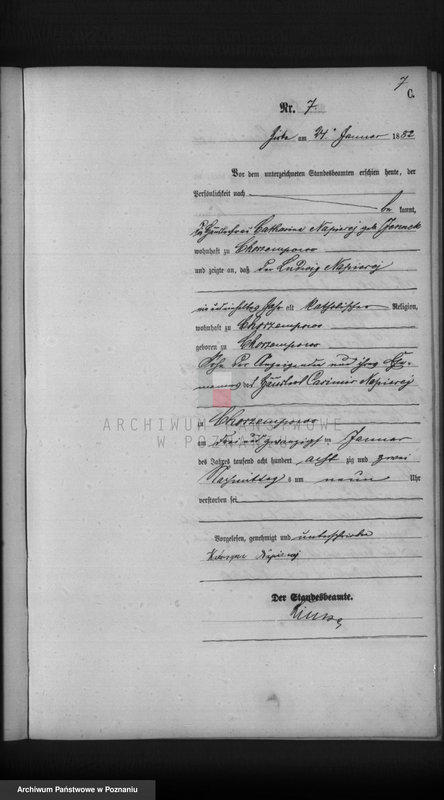 7
C.
Nr. 7.
am 24. Januar 1882
Vor dem unterzeichneten Standesbeamten erschien heute, der
Persönlichkeit nach
be kannt,
Catharina Napieraj geb.
wohnhaft zu Chorzemporo
und zeigte an, daß der Ludwig Napieraj
Jahr alt katholischer Religion,
wohnhaft zu Chorzemporo
geboren zu Chorzemporo
Sohn der Anzeigenden und ihres Ehe-
mannes des Casimir Napieraj
zu Chorzemporo
ARCHIWUM PAŃSTWOWE
W POZNANIU
am drei und zwanzigsten Januar
des Jahres tausend acht hundert acht zig und zwei
Nachmittag s um neun Uhr
verstorben sei
Vorgelesen, genehmigt und unterschrieben
Napieraj
Der Standesbeamte.
Archiwum Państwowe w Poznaniu